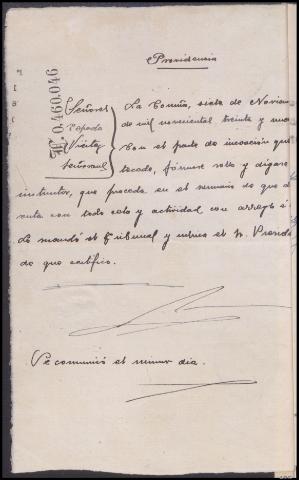 Providencia
N.0,460,046
Señores
Cepeda
Vieitez
Señorans
La Coruña, siete de Noviem
de mil novecientos treinta y uno
Con el parte de incoación que
tecede, fórmese rollo y dígase
instructor, que proceda en el sumario de que d
cuenta con todo celo y actividad con arreglo á
Lo mandó el Tribunal y rubrica el Sr. Preside
de que certifico.
Se comunicó el mismo día.